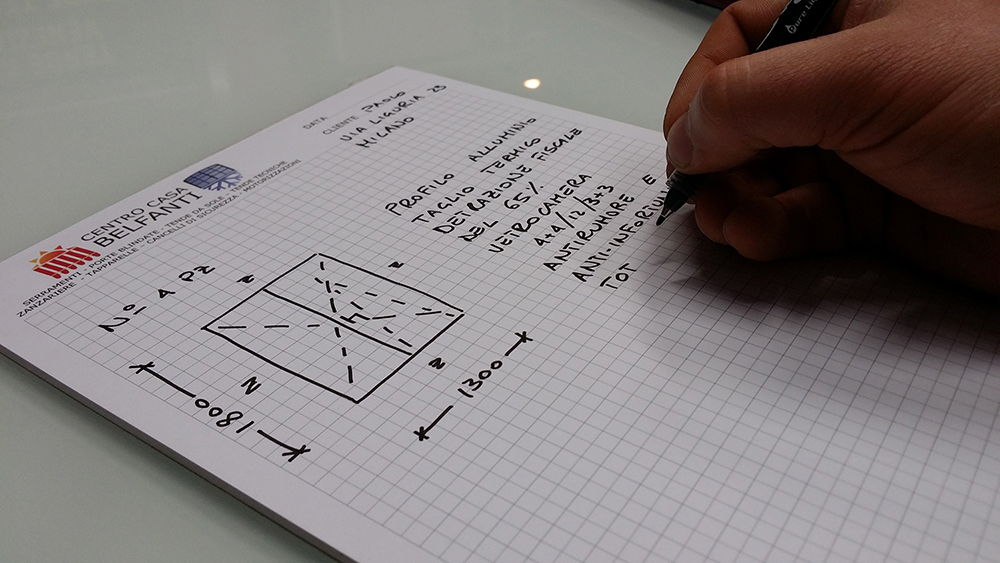 CENTRO CASA
BELFANTI
SERRAMENTI - PORTE BLINDATE - TENDE DA SOLE - TENDE TECNICHE
ZANZARIERE - TAPPARELLE - CANCELLI DI SICUREZZA - MOTORIZZAZIONI
DATA
CLIENTE PAOLO
VIA LIGURIA 23
MILANO
PROFILO ALLUMINIO
TAGLIO TERMICO
DETRAZIONE FISCALE
DEL 65%
VETROCAMERA
4+4/12/3+3
ANTIRUMORE E
ANTI-INFORTUN
TOT
N° 4 PZ
Z
Z
Z
Z
1800
1300